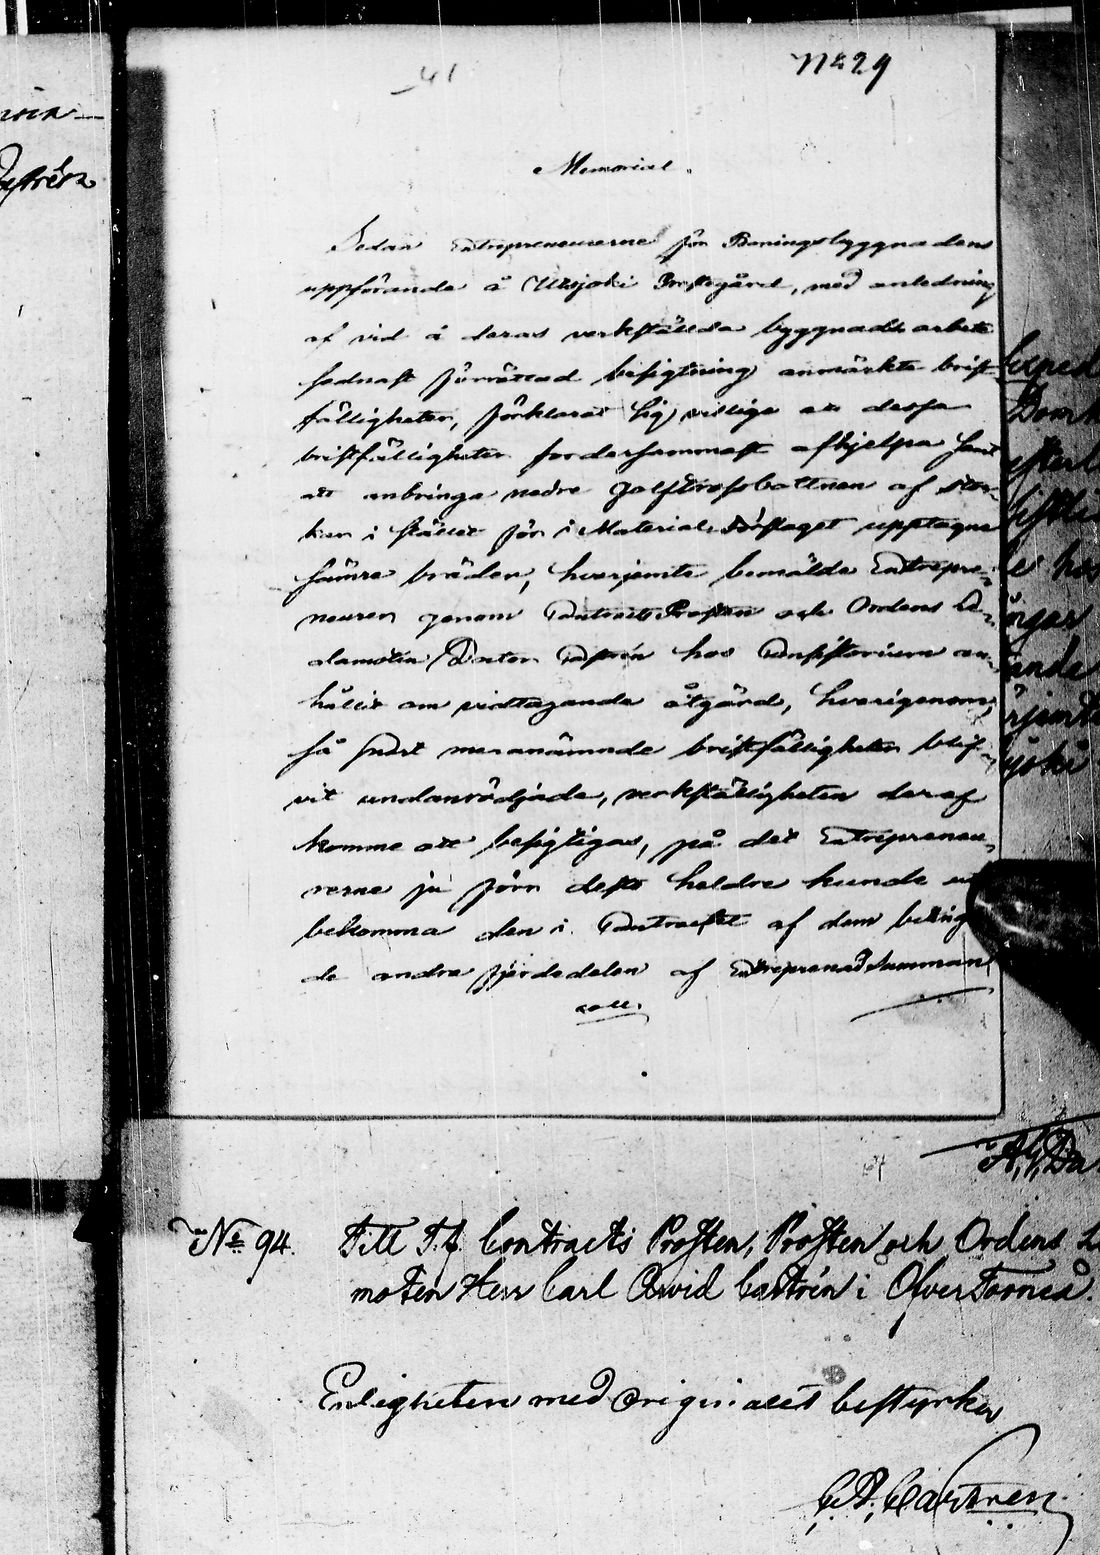 41
No 29
Memorial.
Sedan Entrepreneurerne för Boningsbyggnadens
uppförande å Utsjoki Prestegård, med anledning
af vid å deras verkställda byggnads arbete
sednast förrättad besigtning anmärkte brist
fälligheter, förklarat sig villige att dessa
bristfälligheter fordersammast afhjelpa samt
att anbringa nedre golftrossbottnen af stoc-
kar i stället för i Material-Förslaget upptagne
sämre bräder, hvarjemte bemälde Entrepre-
neurer genom Contracts Prosten och Ordens Le-
damoten Doctor Castrén hos Consistorium an-
hållit om vidtagande åtgärd, hvarigenom,
så snart meranämnde bristfälligheter blif-
vit undanrödjade, verkställigheten deraf
komme att besigtigas, på det Entrepreneu-
rerne ju förr desto heldre kunde ut
bekomma den i Contractet af dem beting
de andra fjerdedelen af Entreprenad Summan
coll.
No 94. Till T.f. Contracts Prosten, Prosten och Ordens Le
moten Herr Carl Arvid Castrén i ÖfverTorneå.
Enligheten med originalet bestyrker
C. A. Castrén